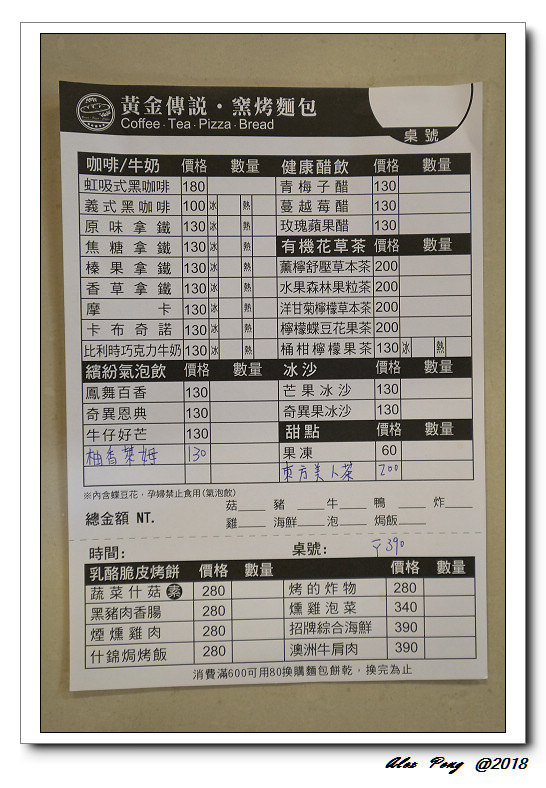 黃金傳說・窯烤麵包
Coffee · Tea · Pizza · Bread
桌號
咖啡/牛奶 價格 數量 健康醋飲 價格 數量
虹吸式黑咖啡 180 青梅子醋 130
義式黑咖啡 100 冰 熱 蔓越莓醋 130
原味拿鐵 130 冰 熱 玫瑰蘋果醋 130
焦糖拿鐵 130 冰 熱 有機花草茶 價格 數量
榛果拿鐵 130 冰 熱 薰檸舒壓草本茶 200
香草拿鐵 130 冰 熱 水果森林果粒茶 200
摩卡 130 冰 熱 洋甘菊檸檬草本茶 200
卡布奇諾 130 冰 熱 檸檬蝶豆花果茶 200
比利時巧克力牛奶 130 冰 熱 桶柑檸檬果茶 130 冰 熱
繽紛氣泡飲 價格 數量 冰沙 價格 數量
鳳舞百香 130 芒果冰沙 130
奇異恩典 130 奇異果冰沙 130
牛仔好芒 130 甜點 價格 數量
柚香萊姆 130 果凍 60
東方美人茶 200
※內含蝶豆花,孕婦禁止食用(氣泡飲)
菇 豬 牛 鴨 炸
總金額 NT. 雞 海鮮 泡 焗飯
時間: 桌號: 390
乳酪脆皮烤餅 價格 數量 價格 數量
蔬菜什菇 素 280 烤的炸物 280
黑豬肉香腸 280 燻雞泡菜 340
煙燻雞肉 280 招牌綜合海鮮 390
什錦焗烤飯 280 澳洲牛肩肉 390
消費滿600可用80換購麵包餅乾,換完為止
Alex Pong @2018